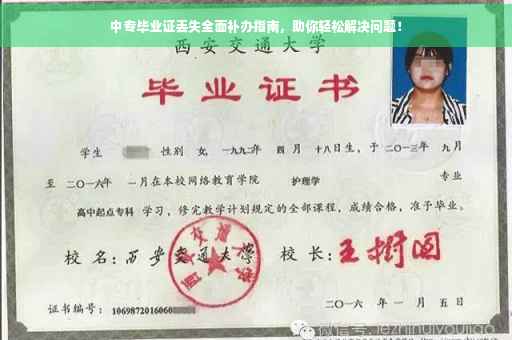 中专毕业证丢失全面补办指南，助你轻松解决问题！
西安交通大学
毕业证书
学生 性别 女，一九九二年 四月 十八日生，于 二〇一三年 九月
至 二〇一六年 一月在本校网络教育学院 护理学 专业
高中起点专科 学习，修完教学计划规定的全部课程，成绩合格，准予毕业。
校名：西安交通大学 校长：王树国
证书编号：1069872016060
二〇一六年 一月 五日
微信号: jezhinuiyoujiao